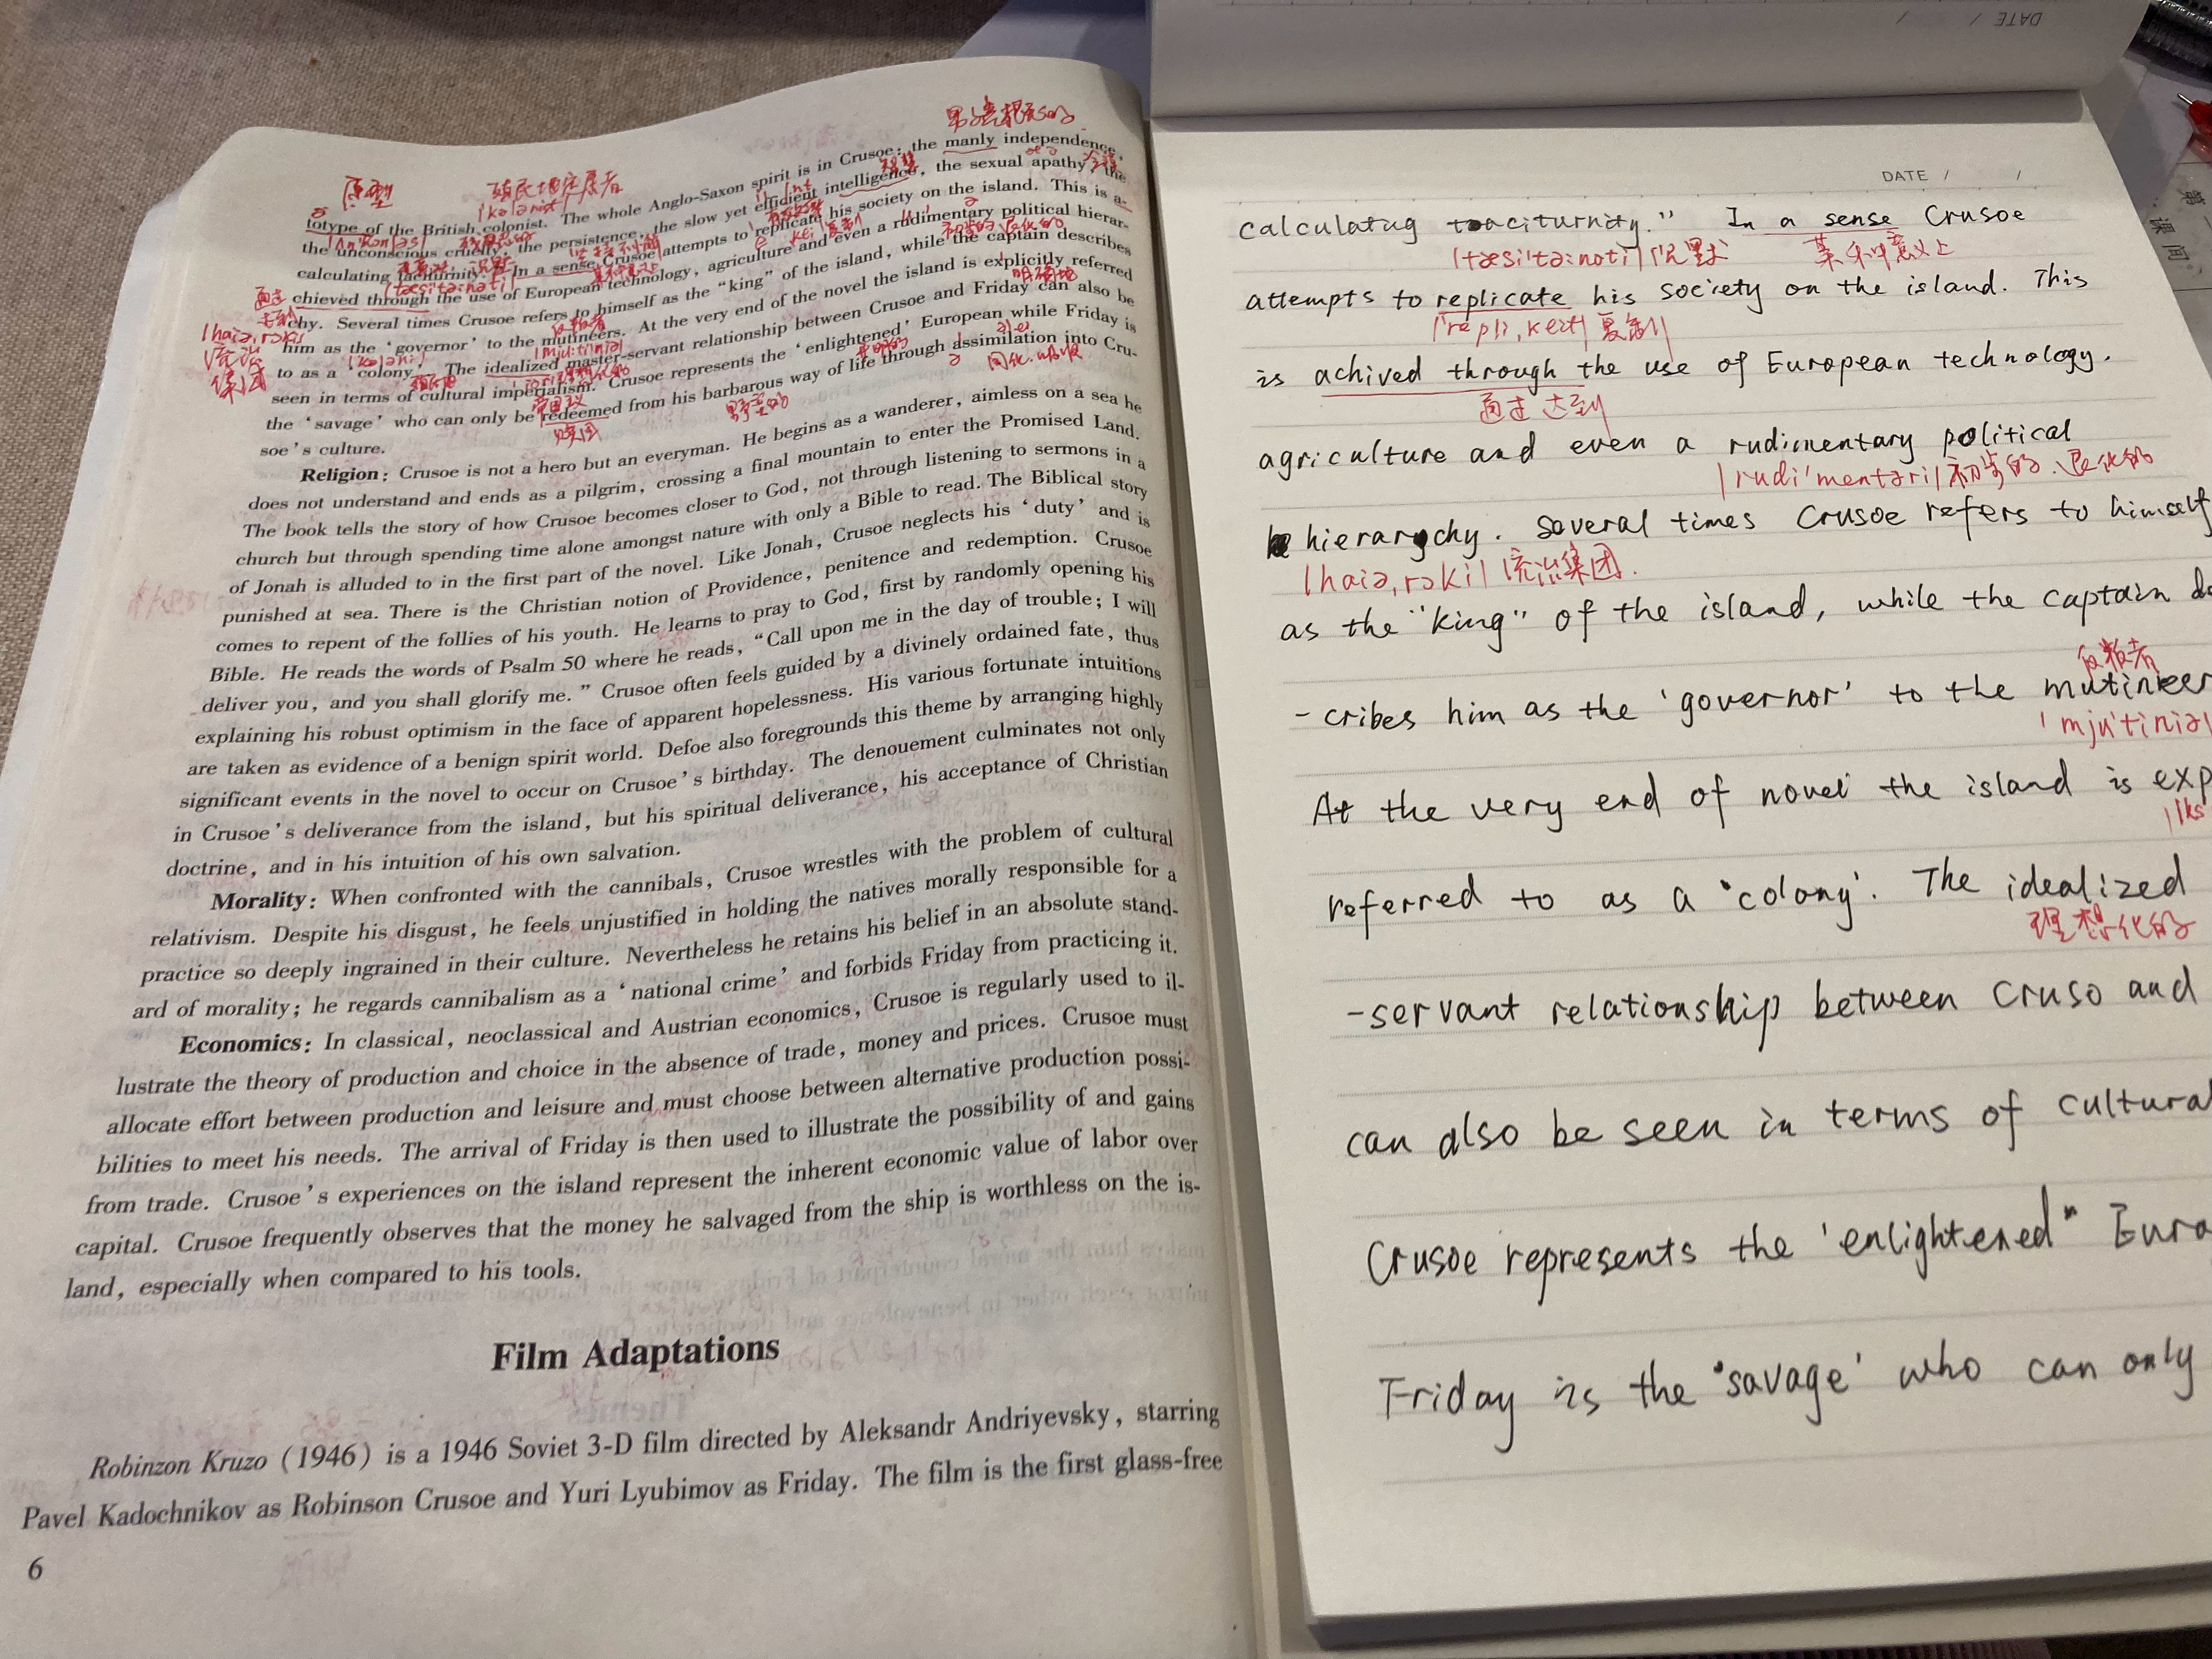 男子气概的
totype of the British colonist. The whole Anglo-Saxon spirit is in Crusoe: the manly independence,
the unconscious cruelty, the persistence, the slow yet efficient intelligence, the sexual apathy, the
calculating taciturnity." In a sense Crusoe attempts to replicate his society on the island. This is a-
chieved through the use of European technology, agriculture and even a rudimentary political hierar-
chy. Several times Crusoe refers to himself as the "king" of the island, while the captain describes
him as the 'governor' to the mutineers. At the very end of the novel the island is explicitly referred
to as a 'colony'. The idealized master-servant relationship between Crusoe and Friday can also be
seen in terms of cultural imperialism. Crusoe represents the 'enlightened' European while Friday is
the 'savage' who can only be redeemed from his barbarous way of life through assimilation into Cru-
soe's culture.
原型
殖民地定居者
明确地
同化.吸收
野蛮的
赎回
Religion: Crusoe is not a hero but an everyman. He begins as a wanderer, aimless on a sea he
does not understand and ends as a pilgrim, crossing a final mountain to enter the Promised Land.
The book tells the story of how Crusoe becomes closer to God, not through listening to sermons in a
church but through spending time alone amongst nature with only a Bible to read. The Biblical story
of Jonah is alluded to in the first part of the novel. Like Jonah, Crusoe neglects his 'duty' and is
punished at sea. There is the Christian notion of Providence, penitence and redemption. Crusoe
comes to repent of the follies of his youth. He learns to pray to God, first by randomly opening his
Bible. He reads the words of Psalm 50 where he reads, "Call upon me in the day of trouble; I will
deliver you, and you shall glorify me." Crusoe often feels guided by a divinely ordained fate, thus
explaining his robust optimism in the face of apparent hopelessness. His various fortunate intuitions
are taken as evidence of a benign spirit world. Defoe also foregrounds this theme by arranging highly
significant events in the novel to occur on Crusoe's birthday. The denouement culminates not only
in Crusoe's deliverance from the island, but his spiritual deliverance, his acceptance of Christian
doctrine, and in his intuition of his own salvation.
Morality: When confronted with the cannibals, Crusoe wrestles with the problem of cultural
relativism. Despite his disgust, he feels unjustified in holding the natives morally responsible for a
practice so deeply ingrained in their culture. Nevertheless he retains his belief in an absolute stand-
ard of morality; he regards cannibalism as a 'national crime' and forbids Friday from practicing it.
Economics: In classical, neoclassical and Austrian economics, Crusoe is regularly used to il-
lustrate the theory of production and choice in the absence of trade, money and prices. Crusoe must
allocate effort between production and leisure and must choose between alternative production possi-
bilities to meet his needs. The arrival of Friday is then used to illustrate the possibility of and gains
from trade. Crusoe's experiences on the island represent the inherent economic value of labor over
capital. Crusoe frequently observes that the money he salvaged from the ship is worthless on the is-
land, especially when compared to his tools.
Film Adaptations
Robinzon Kruzo (1946) is a 1946 Soviet 3-D film directed by Aleksandr Andriyevsky, starring
Pavel Kadochnikov as Robinson Crusoe and Yuri Lyubimov as Friday. The film is the first glass-free
6
DATE / /
DATE / /
calculatug toaciturnity." In a sense Crusoe
|tæsi'tə:nəti| 沉默 某种意义上
attempts to replicate his society on the island. This
|'repli,keit| 复制
is achived through the use of European technology.
通过 达到
agriculture and even a rudimentary political
|rudi'mentəri| 初步的.退化的
hierarychy. Several times Crusoe refers to himself
|haiə,rɔki| 统治集团.
as the "king" of the island, while the captain de
反叛者
-cribes him as the 'governor' to the mutineer
'mju'tiniə|
At the very end of novel the island is exp
|iks'
referred to as a 'colony'. The idealized
理想化的
-servant relationship between Cruso and
can also be seen in terms of cultural
Crusoe represents the 'enlightened" Euro
Friday is the 'savage' who can only